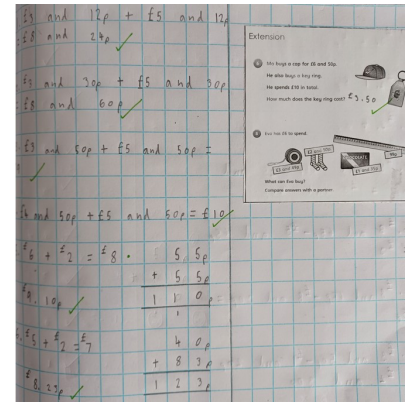 £3 and 12p + £5 and 12p
£8 and 24p
£3 and 30p + £5 and 30p
£8 and 60p
£3 and 50p + £5 and 50p =
£4 and 50p + £5 and 50p = £10
£6 + £2 = £8.
55p
+ 55p
110p
1
£9.10p
£5 + £2 = £7
40p
+ 83p
123p
£8.23p
Extension
Mo buys a cap for £6 and 50p.
He also buys a key ring.
He spends £10 in total.
How much does the key ring cost? £3.50
has £5 to spend.
What can buy?
Compare answers with a partner.